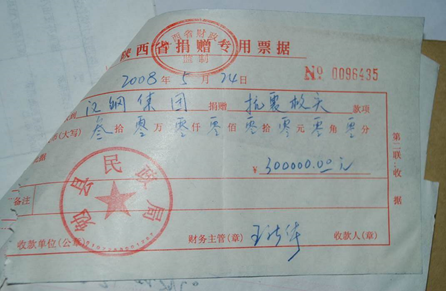 陕西省财政
监制
陕西省捐赠专用票据
2008年5月24日
№ 0096435
汉钢集团 捐赠 抗震救灾 款项
(大写) 叁拾零万零仟零佰零拾零元零角零分
¥ 300000.00元
备注
勉县民政局
收款单位(公章) 财务主管(章) 收款人(章)
第二联:收据